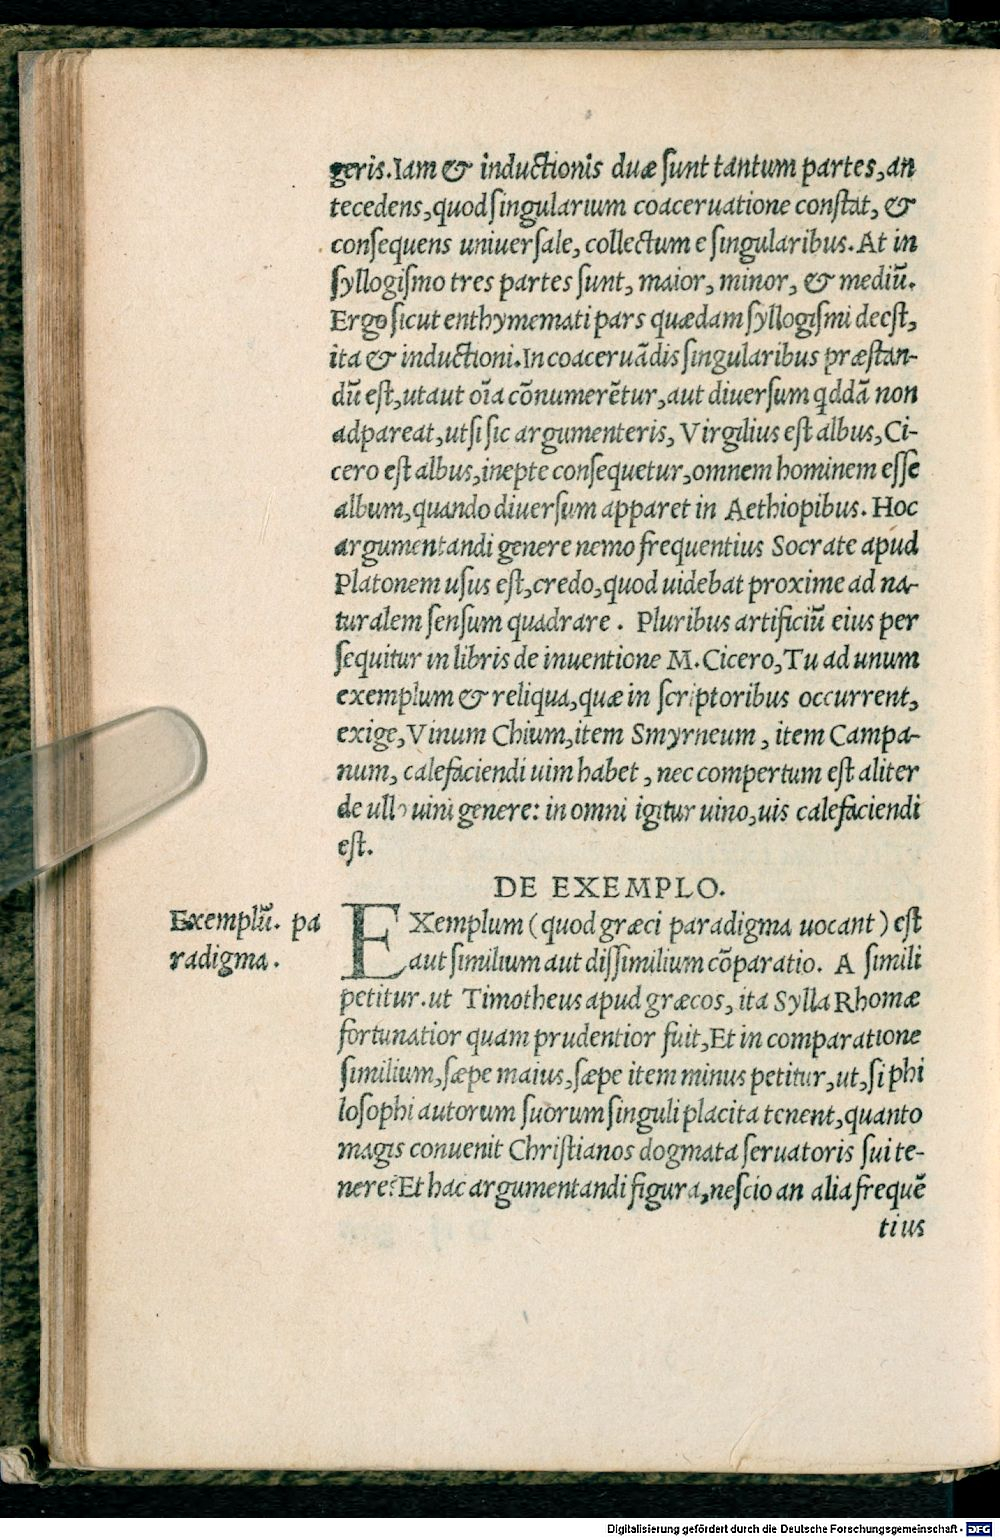 geris. Iam & inductionis duæ ſunt tantum partes, an
tecedens, quod ſingularium coaceruatione conſtat, &
conſequens uniuerſale, collectum e ſingularibus. At in
ſyllogiſmo tres partes ſunt, maior, minor, & mediũ.
Ergo ſicut enthymemati pars quædam ſyllogiſmi deeſt,
ita & inductioni. In coaceruãdis ſingularibus præſtan-
dũ eſt, ut aut oĩa cõnumerẽtur, aut diuerſum qddã non
adpareat, ut ſi ſic argumenteris, Virgilius eſt albus, Ci-
cero eſt albus, inepte conſequetur, omnem hominem eſſe
album, quando diuerſum apparet in Aethiopibus. Hoc
argumentandi genere nemo frequentius Socrate apud
Platonem uſus eſt, credo, quod uidebat proxime ad na-
turalem ſenſum quadrare. Pluribus artificiũ eius per
ſequitur in libris de inuentione M. Cicero, Tu ad unum
exemplum & reliqua, quæ in ſcriptoribus occurrent,
exige, Vinum Chium, item Smyrneum, item Campa-
num, calefaciendi uim habet, nec compertum eſt aliter
de ullo uini genere: in omni igitur uino, uis calefaciendi
eſt.
DE EXEMPLO.
Exemplũ. pa
radigma.
EXemplum (quod græci paradigma uocant) eſt
aut ſimilium aut diſſimilium cõparatio. A ſimili
petitur. ut Timotheus apud græcos, ita Sylla Rhomæ
fortunatior quam prudentior fuit, Et in comparatione
ſimilium, ſæpe maius, ſæpe item minus petitur, ut, ſi phi
loſophi autorum ſuorum ſinguli placita tenent, quanto
magis conuenit Chriſtianos dogmata ſeruatoris ſui te-
nere? Et hac argumentandi figura, neſcio an alia frequẽ
tius
Digitalisierung gefördert durch die Deutsche Forschungsgemeinschaft - DFG